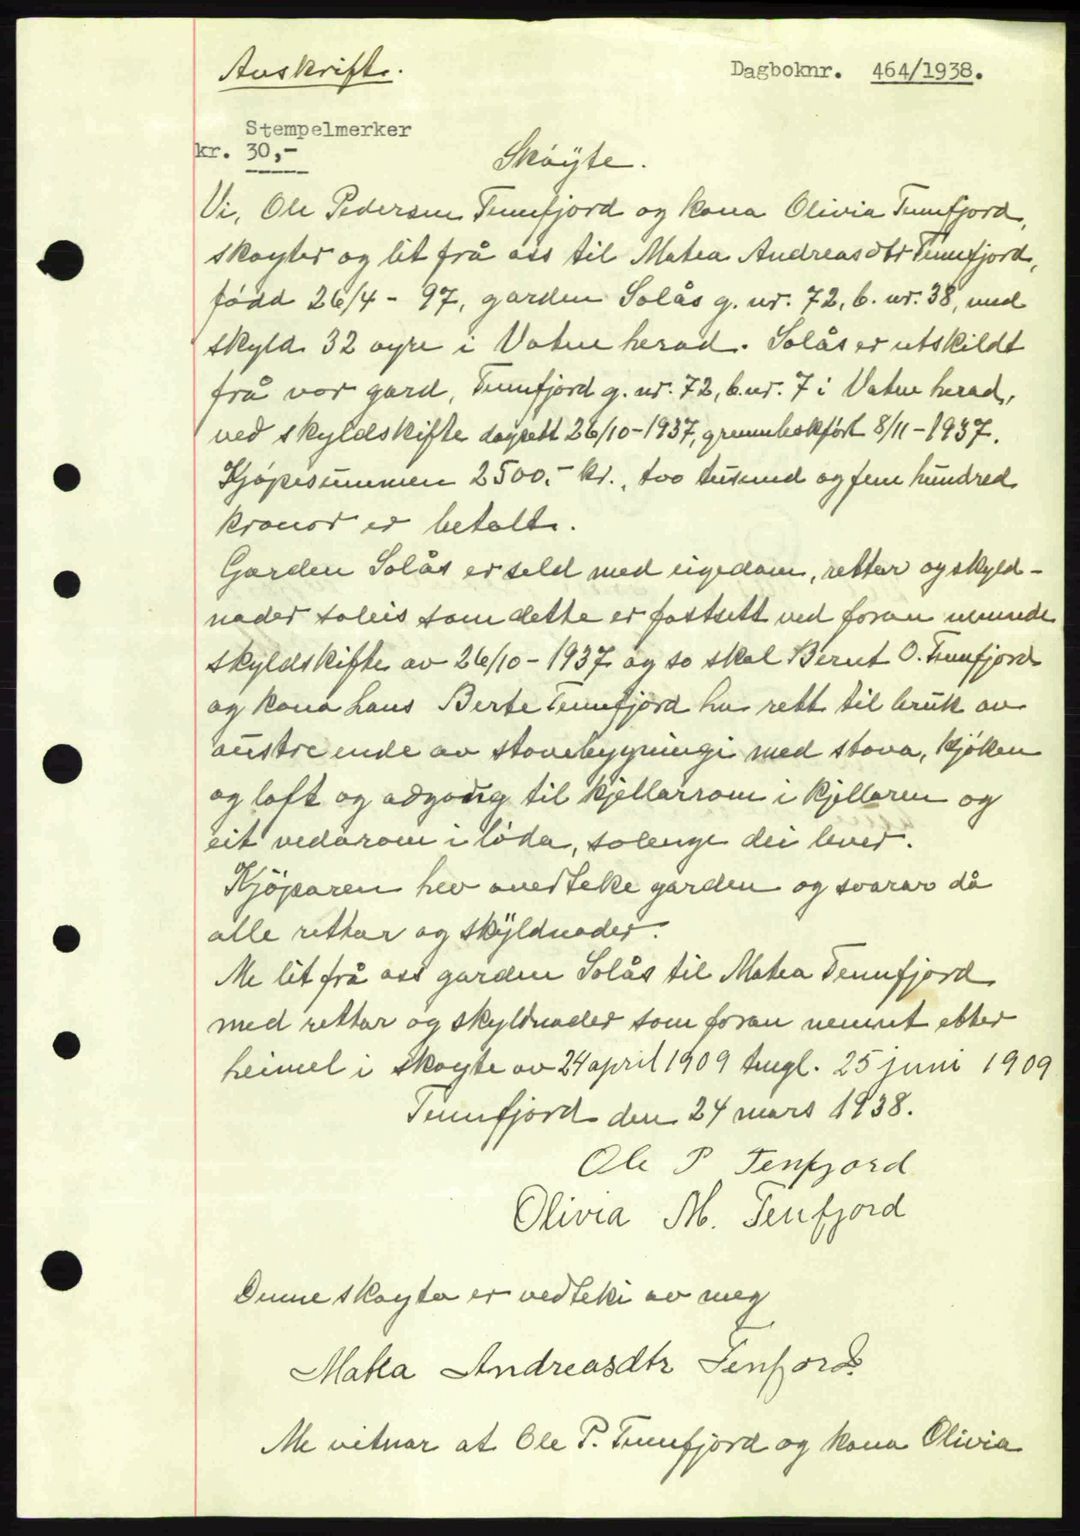 Avskrift.
Dagboknr. 464/1938.
Stempelmerker
kr. 30,-
Skøyte.
Vi, Ole Pedersen Tennfjord og kona Olivia Tennfjord,
skøyter og lit frå oss til Matea Andreasdtr Tennfjord,
fødd 26/4 - 97, garden Solås g. nr. 72, b. nr. 38, med
skyld 32 øyre i Vatne herad. Solås er utskildt
frå vor gard, Tennfjord g. nr. 72, b. nr. 7 i Vatne herad,
ved skyldskifte dagsett 26/10-1937, grunnbokført 8/11-1937.
Kjøpesummen 2500.- kr., tvo tusund og fem hundred
kronor er betalt.
Garden Solås er seld med eigedom, rettar og skyld-
nader soleis som dette er fastsett ved foran nemnde
skyldskifte av 26/10-1937 og so skal Bernt O. Tennfjord
og kona hans Berte Tennfjord ha rett til bruk av
austre ende av stovebygningi med stova, kjøken
og loft og adgang til kjellarrom i kjellaren og
eit vedarom i løda, solenge dei lever.
Kjøparen hev overteke garden og svarar då
alle rettar og skyldnader.
Me lit frå oss garden Solås til Matea Tennfjord
med rettar og skyldnader som foran nemnt etter
heimel i skøyte av 24 april 1909 tingl. 25 juni 1909
Tennfjord den 24 mars 1938.
Ole P Tenfjord
Olivia M. Tenfjord
Denne skøyta er vedteki av meg
Matea Andreasdtr Tenfjord.
Me vitnar at Ole P. Tennfjord og kona Olivia